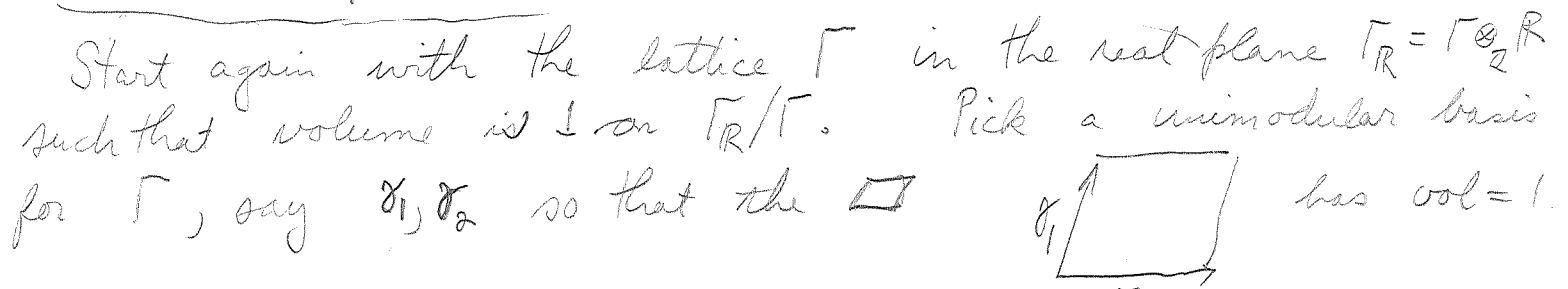 Start again with the lattice Γ in the real plane Γ_ℝ = Γ⊗_ℤ ℝ
such that volume is 1 on Γ_ℝ/Γ. Pick a unimodular basis
for Γ, say γ₁, γ₂ so that the ▱ has vol = 1.
γ₁